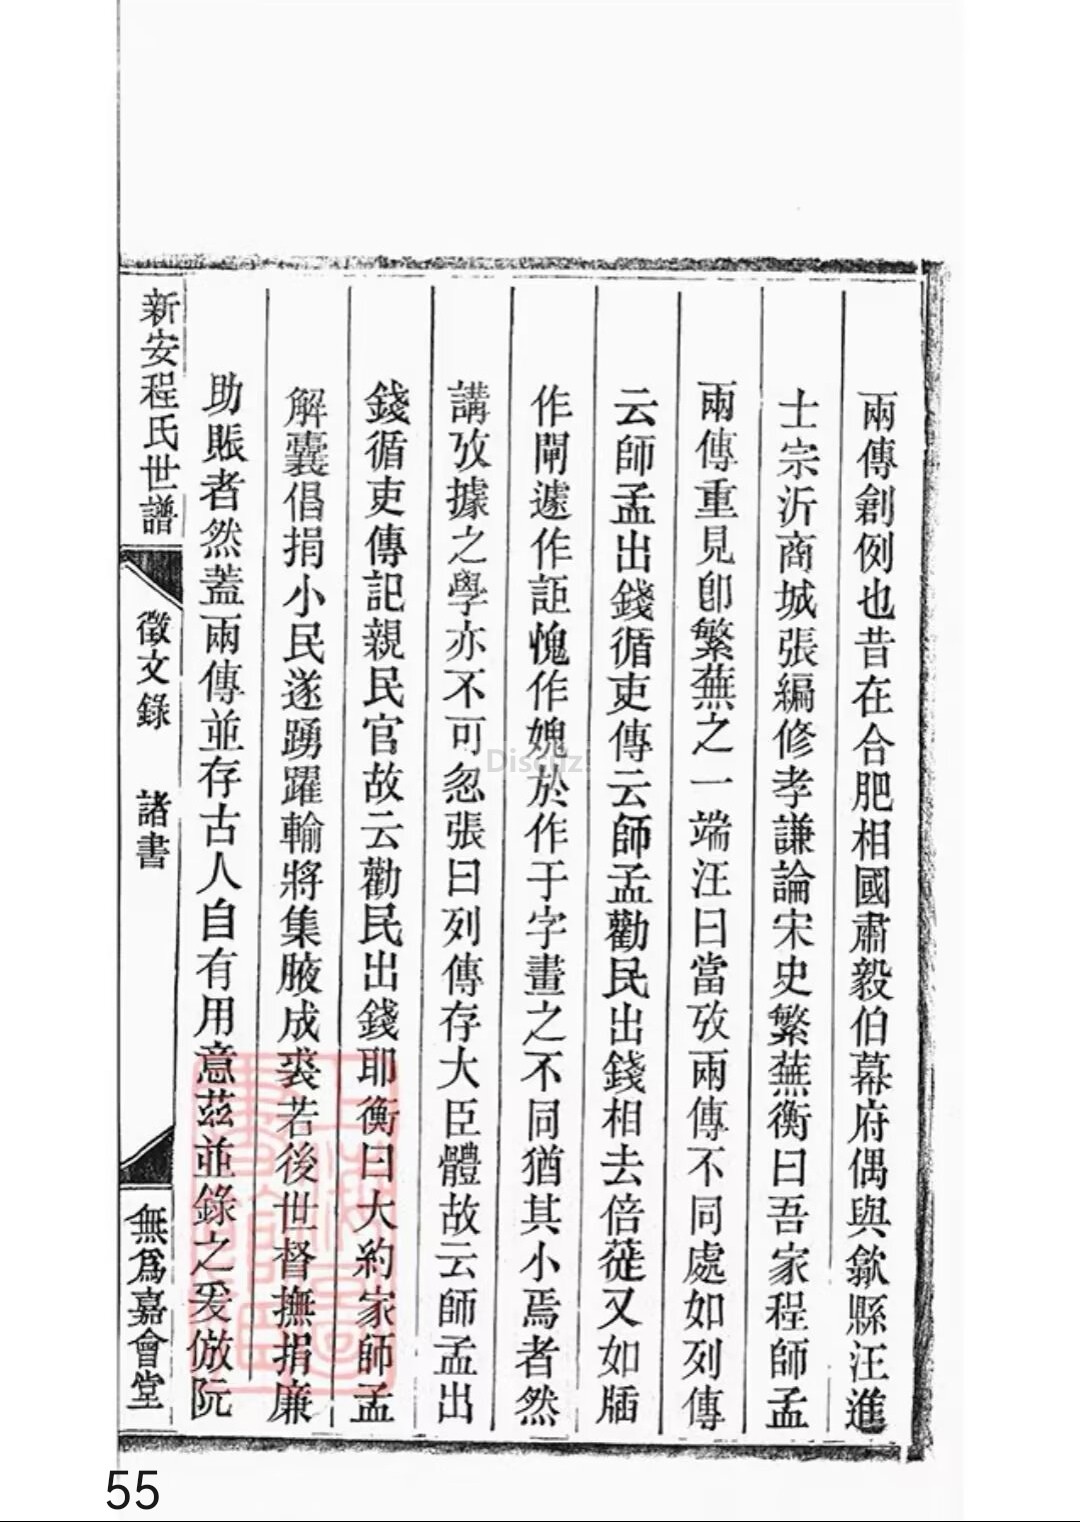 兩傳創例也昔在合肥相國肅毅伯幕府偶與歙縣汪進
士宗沂商城張編修孝謙論宋史繁蕪衡曰吾家程師孟
兩傳重見卽繁蕪之一端汪曰當攷兩傳不同處如列傳
云師孟出錢循吏傳云師孟勸民出錢相去倍蓰又如牐
作閘遽作詎愧作媿於作于字畫之不同猶其小焉者然
講攷據之學亦不可忽張曰列傳存大臣體故云師孟出
錢循吏傳記親民官故云勸民出錢耶衡曰大約家師孟
解囊倡捐小民遂踴躍輸將集腋成裘若後世督撫捐廉
助賑者然蓋兩傳並存古人自有用意茲並錄之爰倣阮
新安程氏世譜
徵文錄 諸書
無爲嘉會堂
Discuz!
55